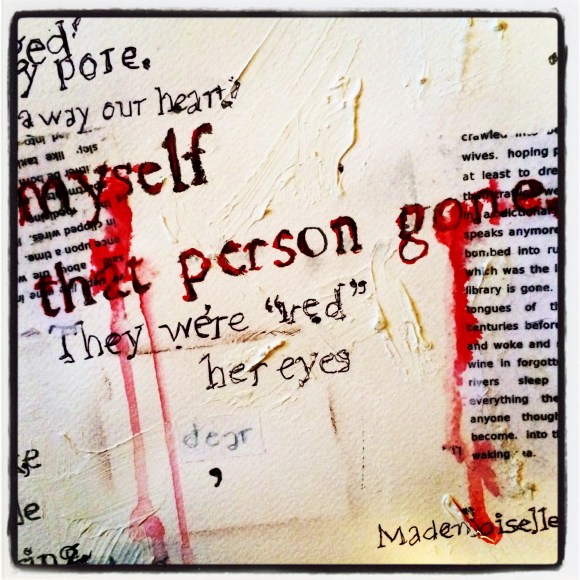 ged'
y pore.
away our heart
myself
that person gone.
They were “red”
her eyes
dear
,
Mademoiselle
le
ing
crawled into be
wives. hoping p
at least to dre
crawled we
in a dictionar
speaks anymore
bombed into ru
which was the l
library is gone.
tongues of th
centuries before
and woke and
wine in forgott
rivers sleep
everything the
anyone though
become. into t
waking
sick. like
in clipped wires.
once upon a time